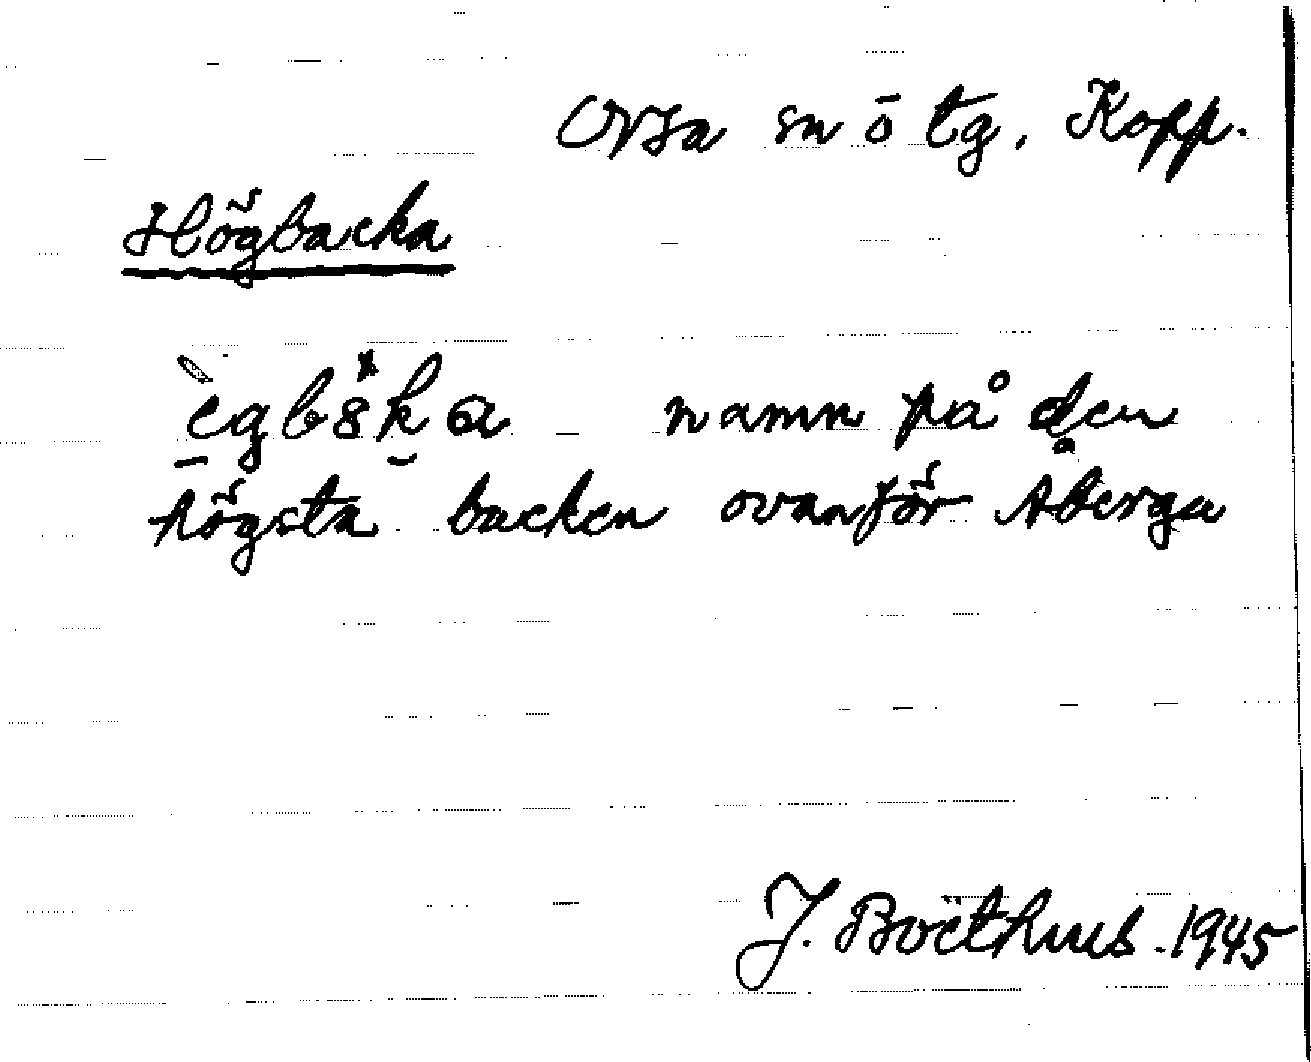 Orsa sn o tg, Kopp.
Högbacka
namn på den
högsta backen ovanför Åberga
J. Boëthius. 1945